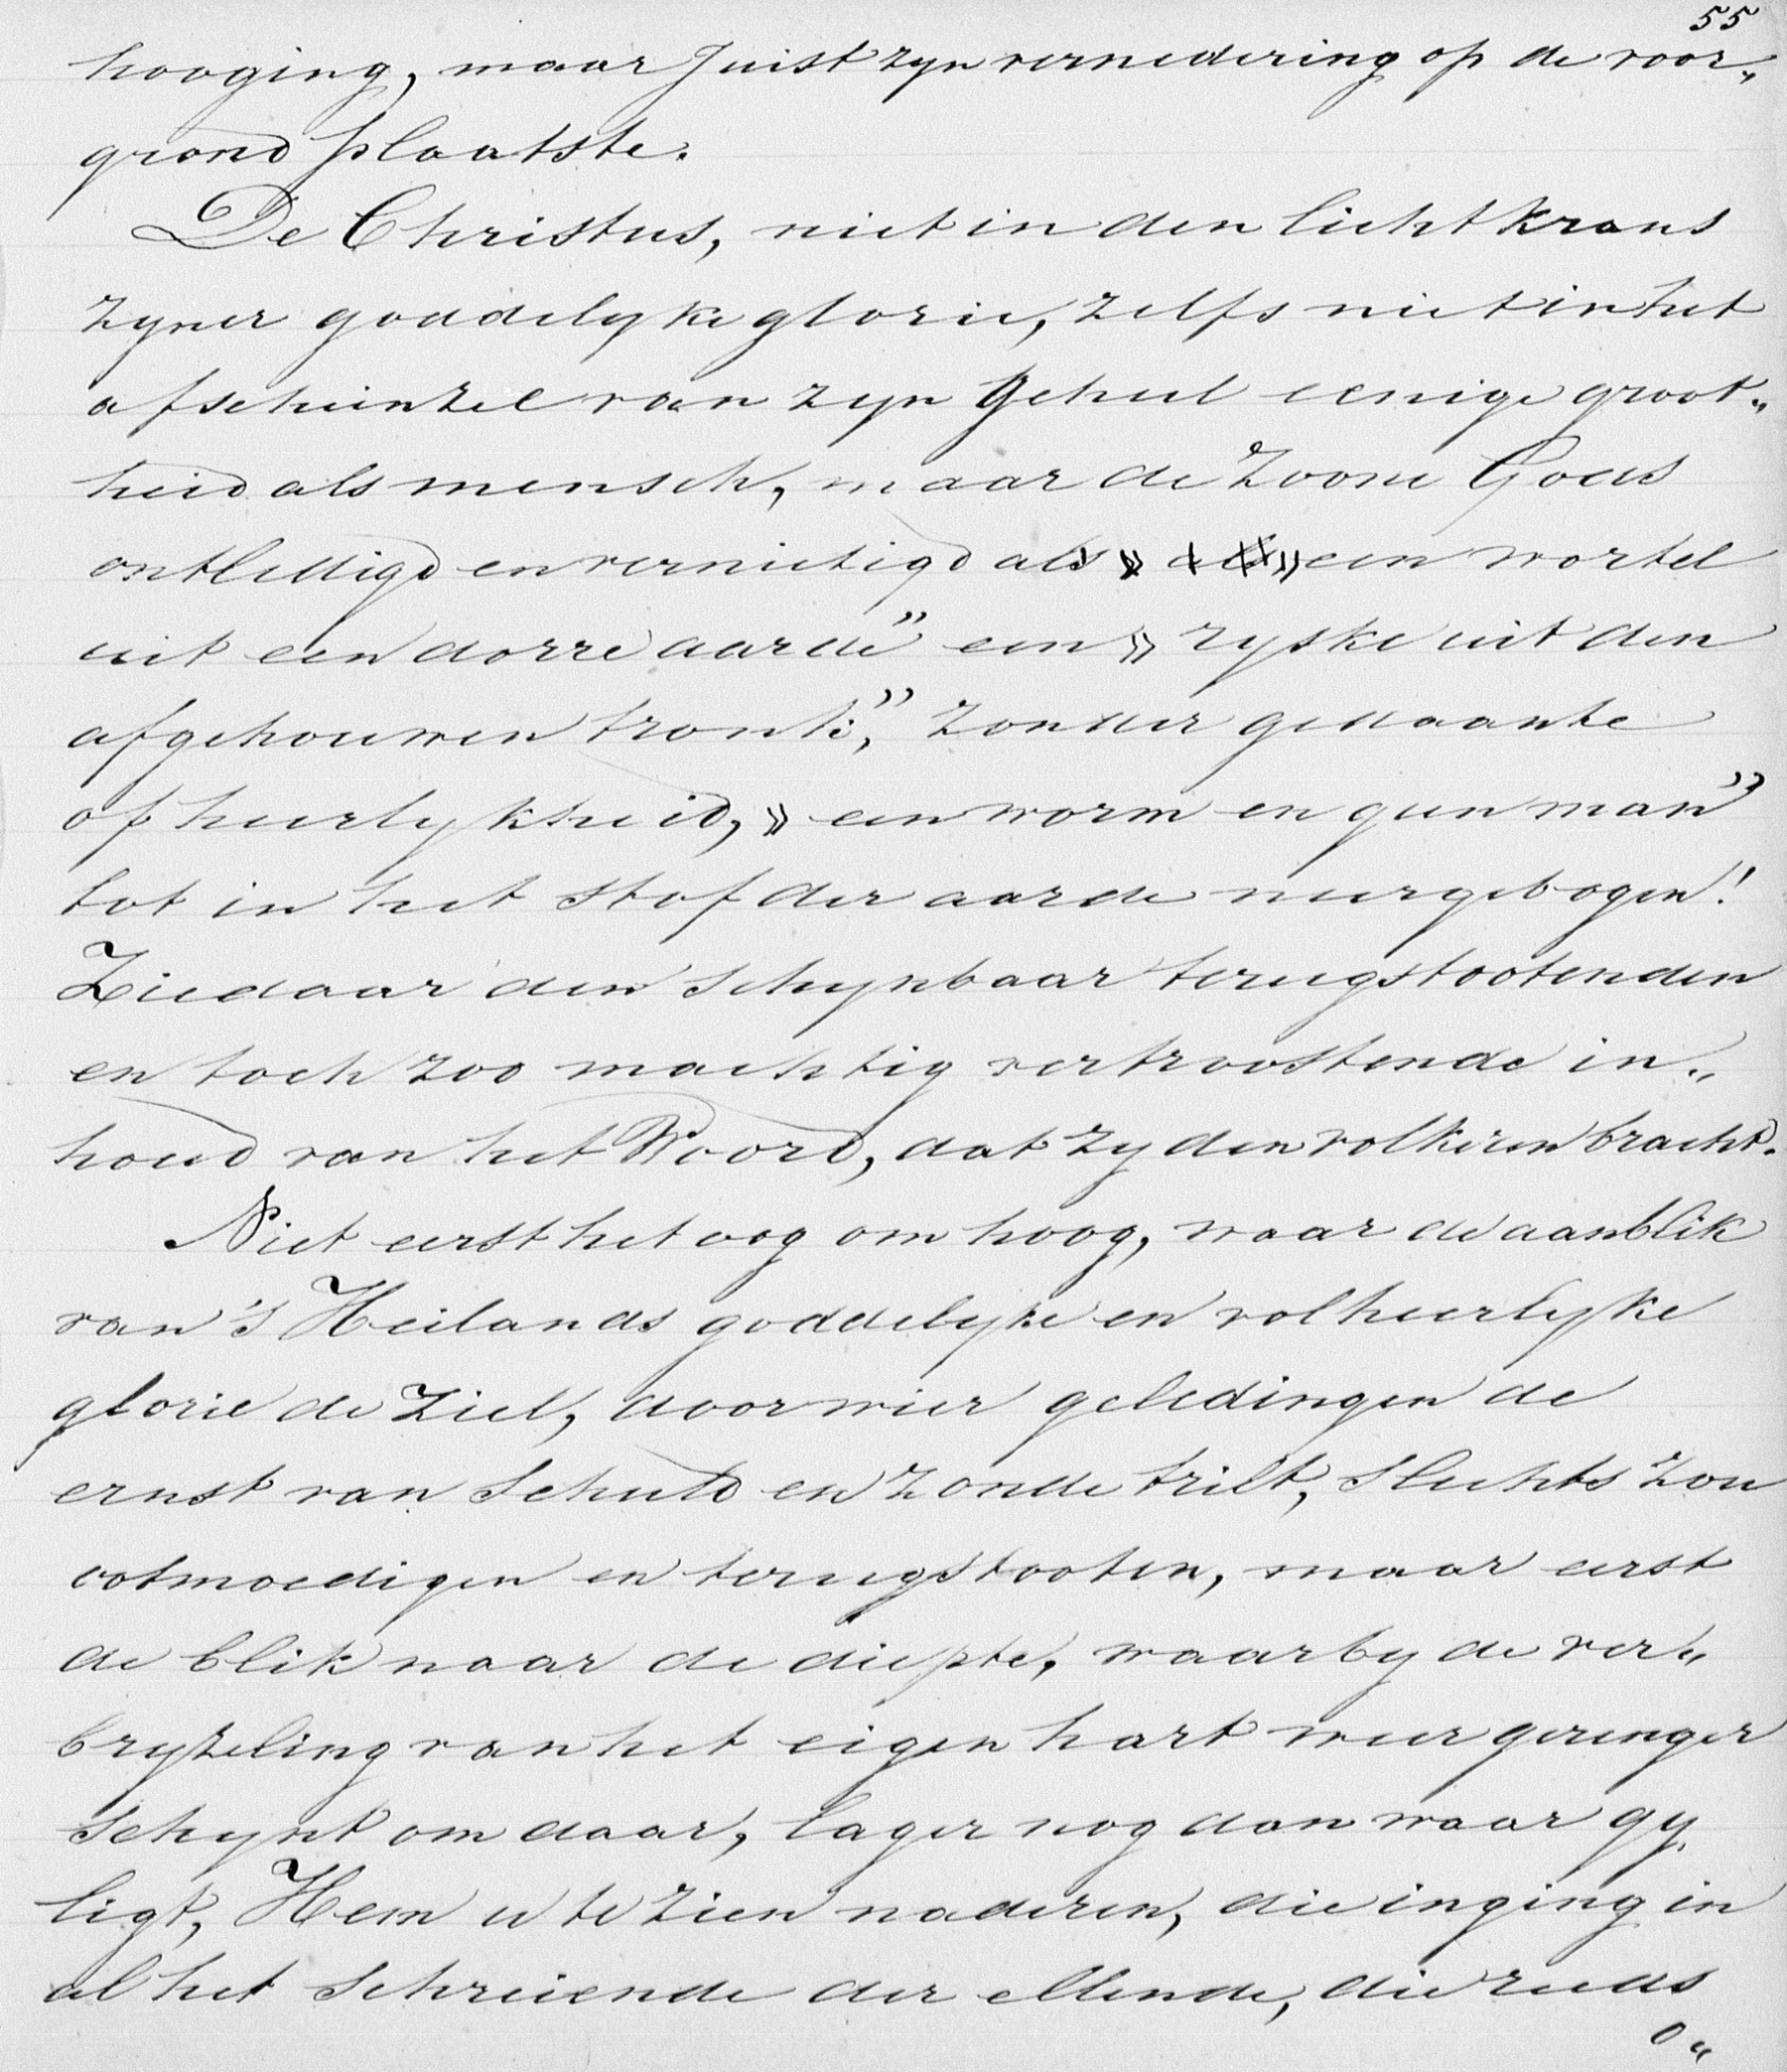 55
hooging, maar juist zyn vernedering op de voor„
grond plaatste.
De Christus, niet in den lichtkrans
zyner goddelyke glorie, zelfs niet in het
afschijnzel van zyn geheel eenige groot„
heid als mensch, maar de Zoone Gods
ontledigd en vernietigd als » een wortel
uit een dorre aarde” een » ryske uit den
afgehouwen tronk,” zonder gedaante
of heerlykheid, » een worm en geen man”
tot in het stof der aarde neergebogen!
Ziedaar den schynbaar terugstootenden
en toch zoo machtig vertroostende in„
houd van het Woord, dat zy den volkeren bracht.
Niet eerst het oog om hoog, waar de aanblik
van 's Heilands goddelyke en volheerlyke
glorie de ziel, door wier geledingen de
ernst van schuld en zonde trilt, slechts zou
ootmoedigen en terugstooten, maar eerst
de blik naar de diepte, waarby de ver„
bryzeling van het eigen hart weer geringer
schynt om daar, lager nog dan waar gy
ligt, Hem u te zien naderen, die inging in
al het schreiende der ellende, die reeds
o„